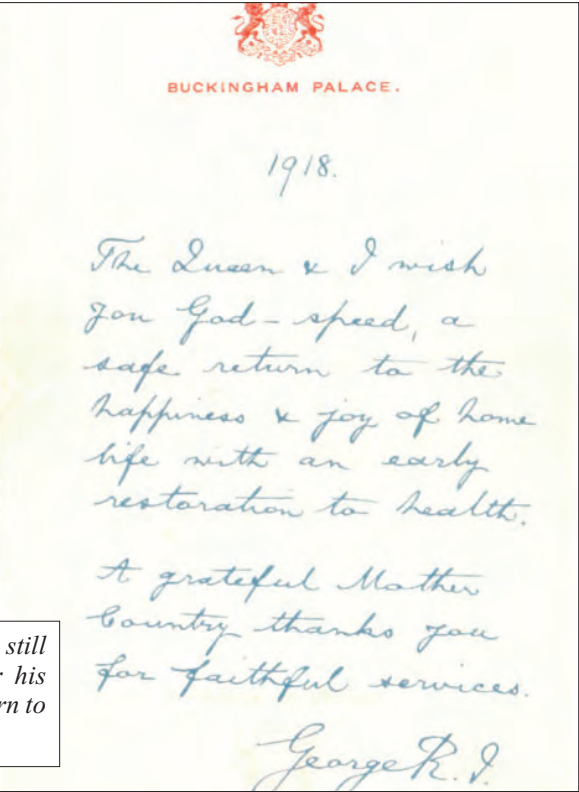 BUCKINGHAM PALACE.
1918.
The Queen & I wish
you God-speed, a
safe return to the
happiness & joy of home
life with an early
restoration to health.
A grateful Mother
Country thanks you
for faithful services.
George R. I.
still
his
rn to